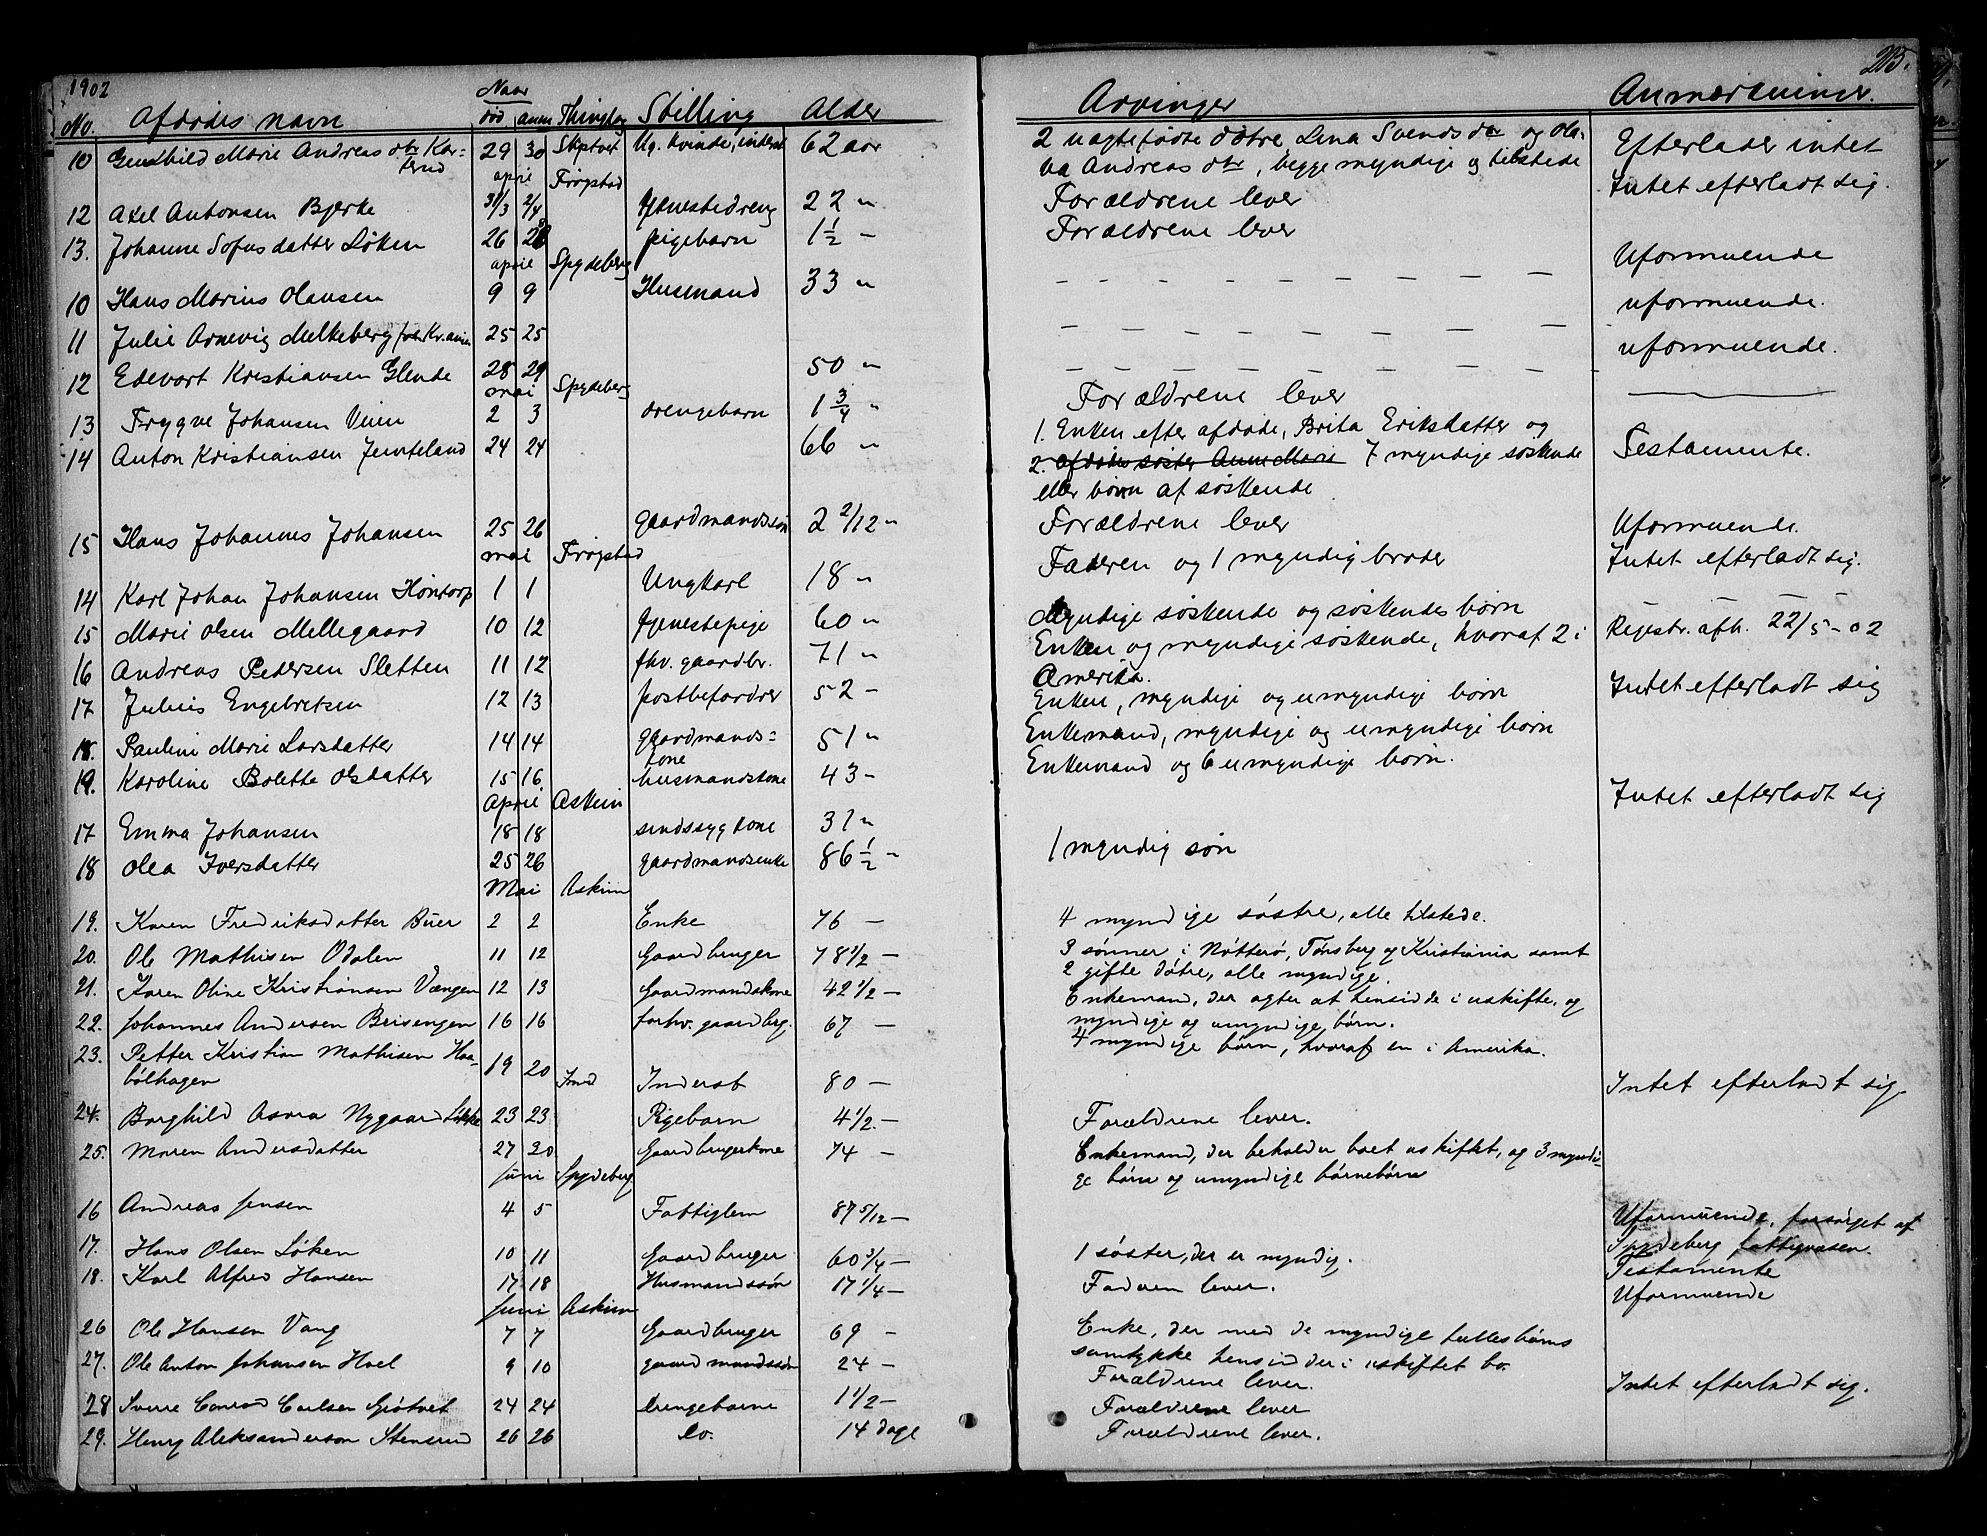 1902
215.
No. Afdødes navn Naar død anm Thinglag Stilling Alder Arvinger Anmærkninger.
10 Gunhild Marie Andreasdtr Kar- 29 30 Skiptvet Ug. kvinde, inderst 62 aar 2 uægtefødte døtre, Lina Svendsdtr og Ola- Efterlader intet
terud va Andreasdtr, begge myndige og tilstede
april Trøgstad Intet efterladt sig.
12 Axel Antonsen Bjerke 31/3 2/4 tjenestedreng 22 " Forældrene lever
13. Johanne Sofusdatter Løken 26 28 pigebarn 1 1/2 - Forældrene lever
april Spydeberg Uformuende
10 Hans Marius Olausen 9 9 Husmand 33 " - - - - - - - -
uformuende.
11 Julie Arnevig Melkeberg 25 25 - - - - - - - -
uformuende.
12 Edevart Kristiansen Glende 28 29 50 " - - - - - - - -
mai Spydeberg
13 Trygve Johansen Veum 2 3 drengebarn 1 3/4 " Forældrene lever
14 Anton Kristiansen 24 24 66 " 1. Enken efter afdøde, Brita Eriksdatter og Testamente.
2. afdødes søster Anne Marie 7 myndige søskende
eller børn af søskende
15 Hans Johannes Johansen 25 26 gaardmandssøn 2 2/12 " Forældrene lever Uformuende.
mai Trøgstad Intet efterladt sig.
14 Karl Johan Johansen Høntorp 1 1 Ungkarl 18 " Faderen og 1 myndig broder
15 Marie Olsen Mellegaard 10 12 tjenestepige 60 " Myndige søskende og søskendes børn - - -
16 Andreas Pedersen Sletten 11 12 fhv. gaardbr. 71 " Enken og myndige søskende, hvoraf 2 i Registr. afh. 22/5-02
Amerika.
17 Julius Engebretsen 12 13 postbefordrer 52 - Enken, myndige og umyndige børn Intet efterladt sig
18. Pauline Marie Larsdatter 14 14 gaardmands= 51 " Enkemand, myndige og umyndige børn
kone
19. Karoline Bolette Olsdatter 15 16 husmandskone 43 - Enkemand og 6 umyndige børn.
April Askim
17 Emma Johansen 18 18 sindssyg kone 37 " Intet efterladt sig
18 Olea Iversdatter 25 26 gaardmandsenke 86 1/2 - 1 myndig søn
Mai Askim
19. Karen Fredriksdatter Buer 2 2 Enke 76 - 4 myndige søstre, alle tilstede.
20. Ole Mathisen Odalen 11 12 Gaardbruger 78 1/2 - 3 sønner i Nøtterø, Tønsberg og Kristiania samt
2 gifte døtre, alle myndige.
21. Karen Oline Kristiansen Vængen 12 13 Gaardmandskone 42 1/2 - Enkemand, der agter at hensidde i uskifte, og
myndige og umyndige børn.
22. Johannes Andersen Brisengen 16 16 forhv. gaardbrg. 67 - 4 myndige børn, hvoraf en i Amerika.
23. Petter Kristian Mathisen Haa-
bølhagen 19 20 Inderst 80 - Intet efterladt sig.
24. Borghild Asora Nygaard Løkke 23 23 Pigebarn 4 1/2. - Forældrene lever.
25. Maren Andersdatter 27 30 Gaardbrugerkone 74 - Enkemand, der beholder boet uskiftet, og 3 myndi-
juni Spydeberg ge børn og umyndige børnebørn
16 Andreas Jensen 4 5 Fattiglem 87 5/12 - Uformuende, forsørget af
Spydeberg fattigvæsen.
17. Hans Olsen Løken 10 11 Gaardbruger 60 3/4 - 1 søster, der er myndig. Testamente
18. Karl Alfred Hansen 17 18 Husmandssøn 17 1/4 - Faderen lever. Uformuende
Juni Askim
26 Ole Hansen Vang 7 7 Gaardbruger 69 - Enke, der med de myndige fællesbørns
samtykke hensidder i uskiftet bo.
27. Ole Anton Johansen Hoel 9 10 gaardmandssøn 24 - Forældrene lever. Intet efterladt sig.
28 Sverre Conrad Carlsen Grøtvet 24 24 Drengebarn 1 1/2 - Forældrene lever
29. Henry Aleksanderson Stensrud 26 26 Do. 14 dage Forældrene lever.